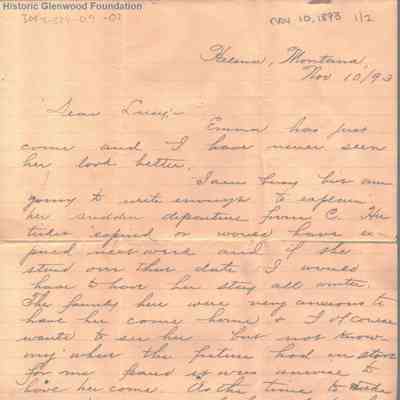 Historic Glenwood Foundation
Nov 10, 1893 1/2
Helena, Montana,
Nov 10/93
Dear Lucy:-
Emma has just
come and I have never seen
her look better.
I am busy but am
going to write enough to explain
her sudden departure from C. Her
ticket expired or would have ex-
pired next week and if she
staid over that date I would
have to have her stay all winter.
The family here were very anxious to
have her come home & I of course
wanted to see her but not know-
ing what the future had in store
for me found it was unwise to
have her come. As the time to